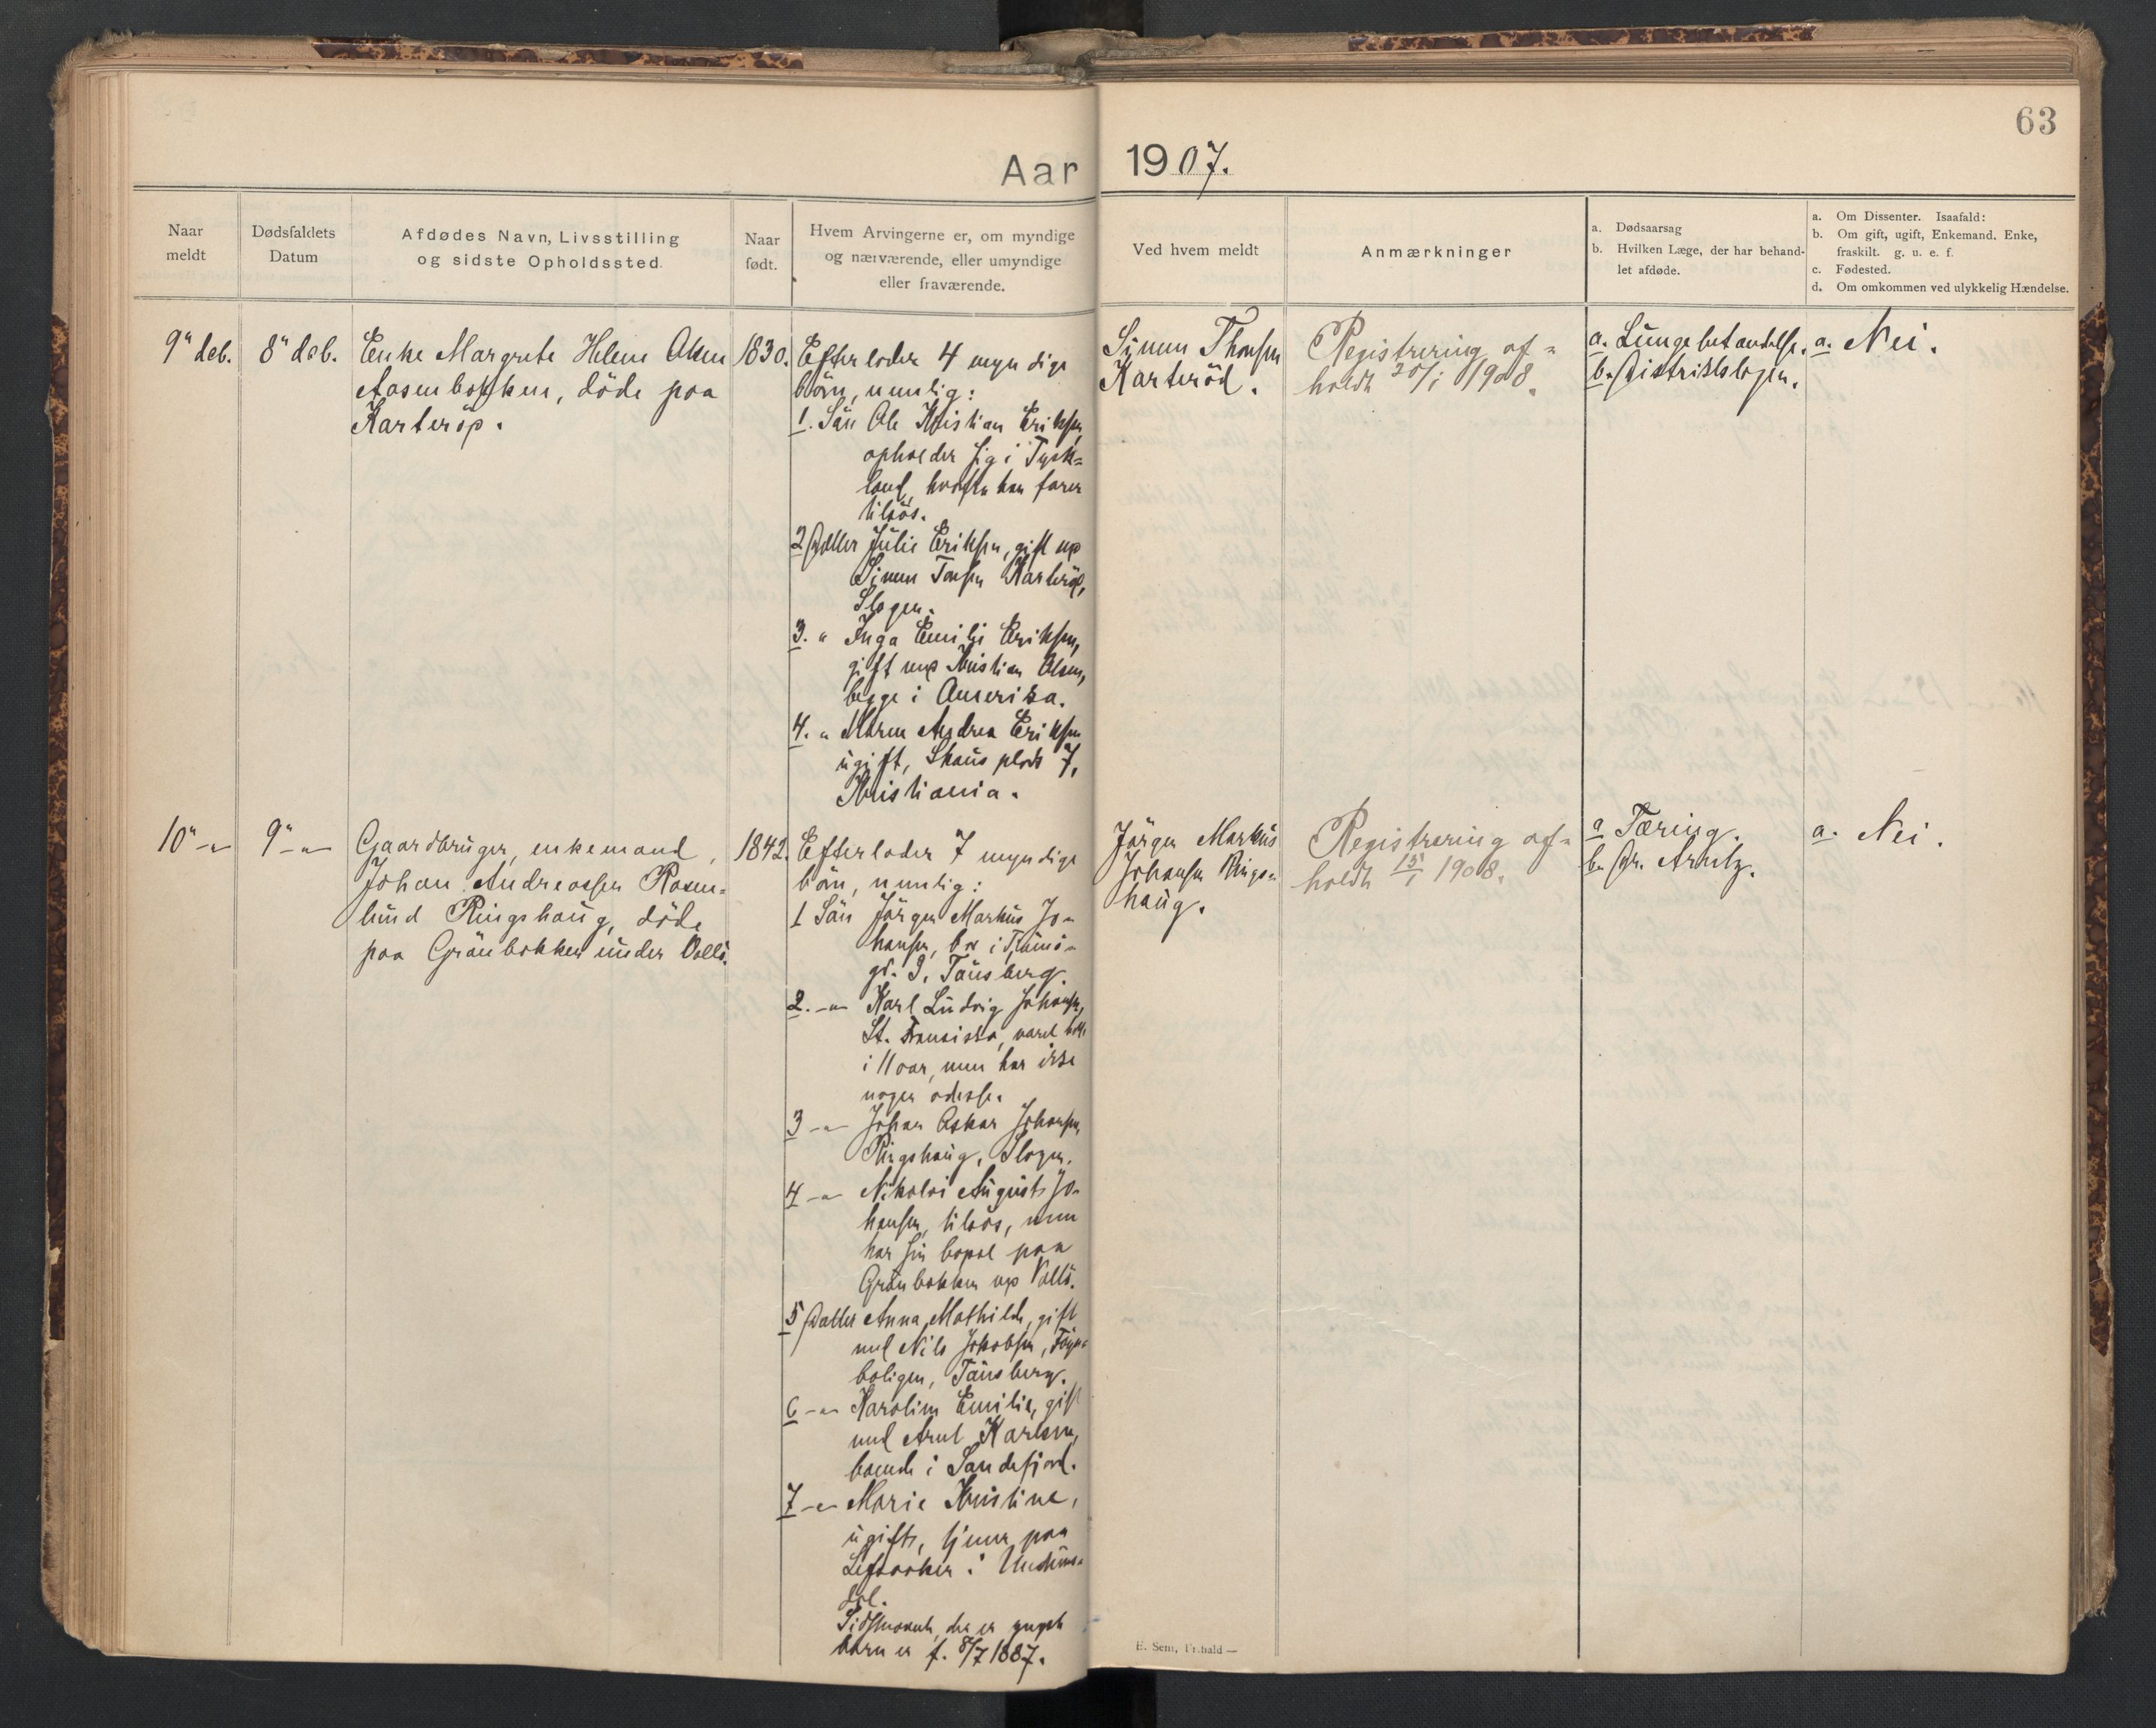 63
Aar 1907.
Naar
meldt
Dødsfaldets
Datum
Afdødes Navn, Livsstilling
og sidste Opholdssted.
Naar
født.
Hvem Arvingerne er, om myndige
og nærværende, eller umyndige
eller fraværende.
Ved hvem meldt
Anmærkninger
a. Dødsaarsag
b. Hvilken Læge, der har behand-
let afdøde.
a. Om Dissenter. Isaafald:
b. Om gift, ugift, Enkemand. Enke,
fraskilt. g. u. e. f.
c. Fødested.
d. Om omkommen ved ulykkelig Hændelse.
9" deb.
8" deb.
Enke Margrete Helene Olsen
Aasenbakken, döde paa
Karteröd.
1830.
Efterlader 4 myndige
börn, nemlig:
1. Sön Ole Kristian Eriksen,
opholder sig i Tysk=
land, hvorfra han farer
tilsös.
2 Datter Julie Eriksen, gift med
Simen Tonsen Karteröd,
Slagen.
3. " Inga Emilie Eriksen,
gift med Kristian Olsen,
begge i Amerika.
4. " Maren Andrea Eriksen
ugift, Skaus plads 7,
Kristiania.
Simen Thonsen
Karteröd.
Registrering af=
holdt 20/1 1908.
a. Lungebetændelse.
b. Distriktslægen.
a. Nei.
10" -"-
9" -"-
Gaardbruger, enkemand,
Johan Andreassen Rosen=
lund Ringshaug, döde
paa Grönbakken under Vallö.
1842.
Efterlader 7 myndige
börn, nemlig:
1 Sön Jörgen Markus Jo-
hansen, bor i
gd. 9, Tönsberg.
2. -"- Karl Ludvig Johansen,
St. Fransisko, været
i 11 aar, men har ikke
nogen adesse.
3 -"- Johan Oskar Johansen
Ringshaug, Slagen.
4 -"- Nikolai August Jo-
hansen, tilsös, men
har sin bopæl paa
Grönbakken ved Vallö.
5 Datter Anna Mathilde, gift
med Nils Jakobsen,
boligen, Tönsberg.
6 -"- Karoline Emilie, gift
med Arnt Karlsen,
boende i Sandefjord.
7 -"- Marie Kristine,
ugift, tjener paa
Lefsaker i Undrums-
dal.
Sidstnævnte, der er yngste
barn er f. 8/7 1887.
Jörgen Markus
Johansen Rings-
haug.
Registrering af-
holdt 15/1 1908.
a Tæring.
b. Dr. Arntz.
a. Nei.
E. Sem, Fr.hald —